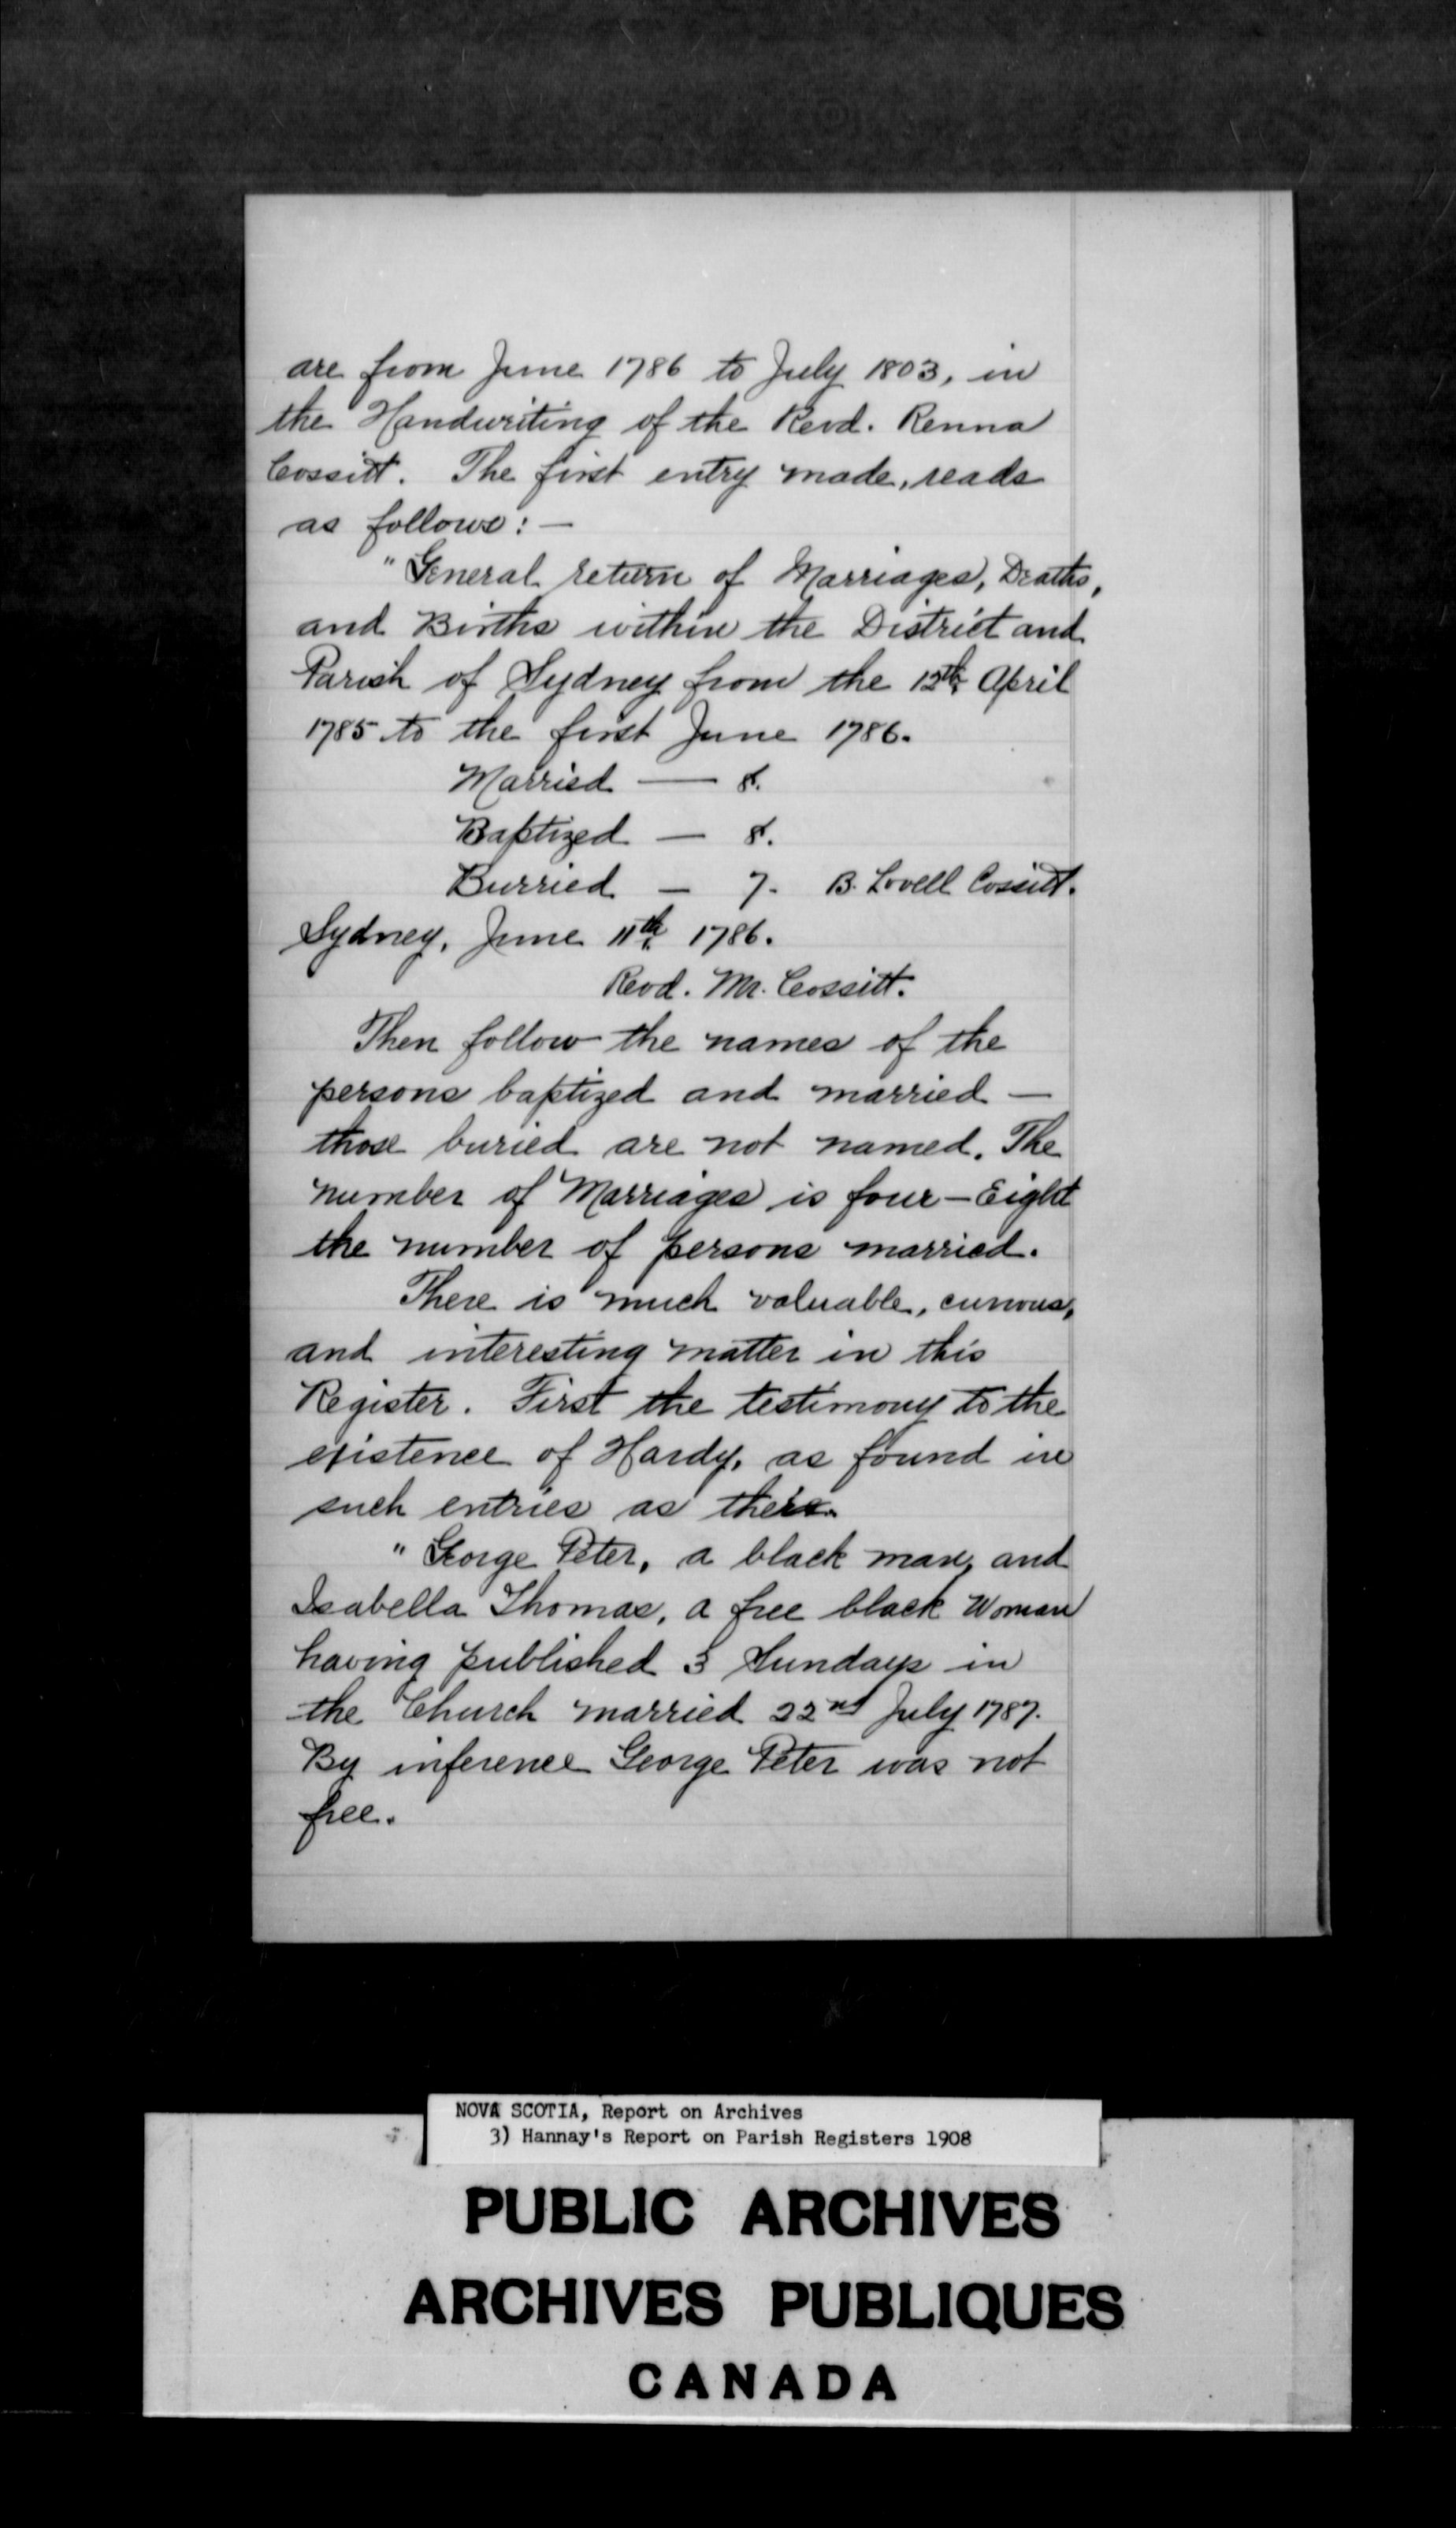 are from June 1786 to July 1803, in
the Handwriting of the Revd. Renna
Cossitt. The first entry made, reads
as follows: —
"General return of Marriages, Deaths,
and Births within the District and
Parish of Sydney from the 12th April
1785 to the first June 1786.
Married — 8.
Baptized — 8.
Burried — 7. B. Lovell Cossitt.
Sydney, June 11th 1786.
Revd. Mr. Cossitt.
Then follow the names of the
persons baptized and married —
those buried are not named. The
number of Marriages is four — Eight
the number of persons married.
There is much valuable, curious,
and interesting matter in this
Register. First the testimony to the
existence of Hardy, as found in
such entries as
"George Peter, a black man, and
Isabella Thomas, a free black Woman
having published 3 Sundays in
the Church married 22nd July 1787.
By inference George Peter was not
free.
NOVA SCOTIA, Report on Archives
3) Hannay's Report on Parish Registers 1908
PUBLIC ARCHIVES
ARCHIVES PUBLIQUES
CANADA